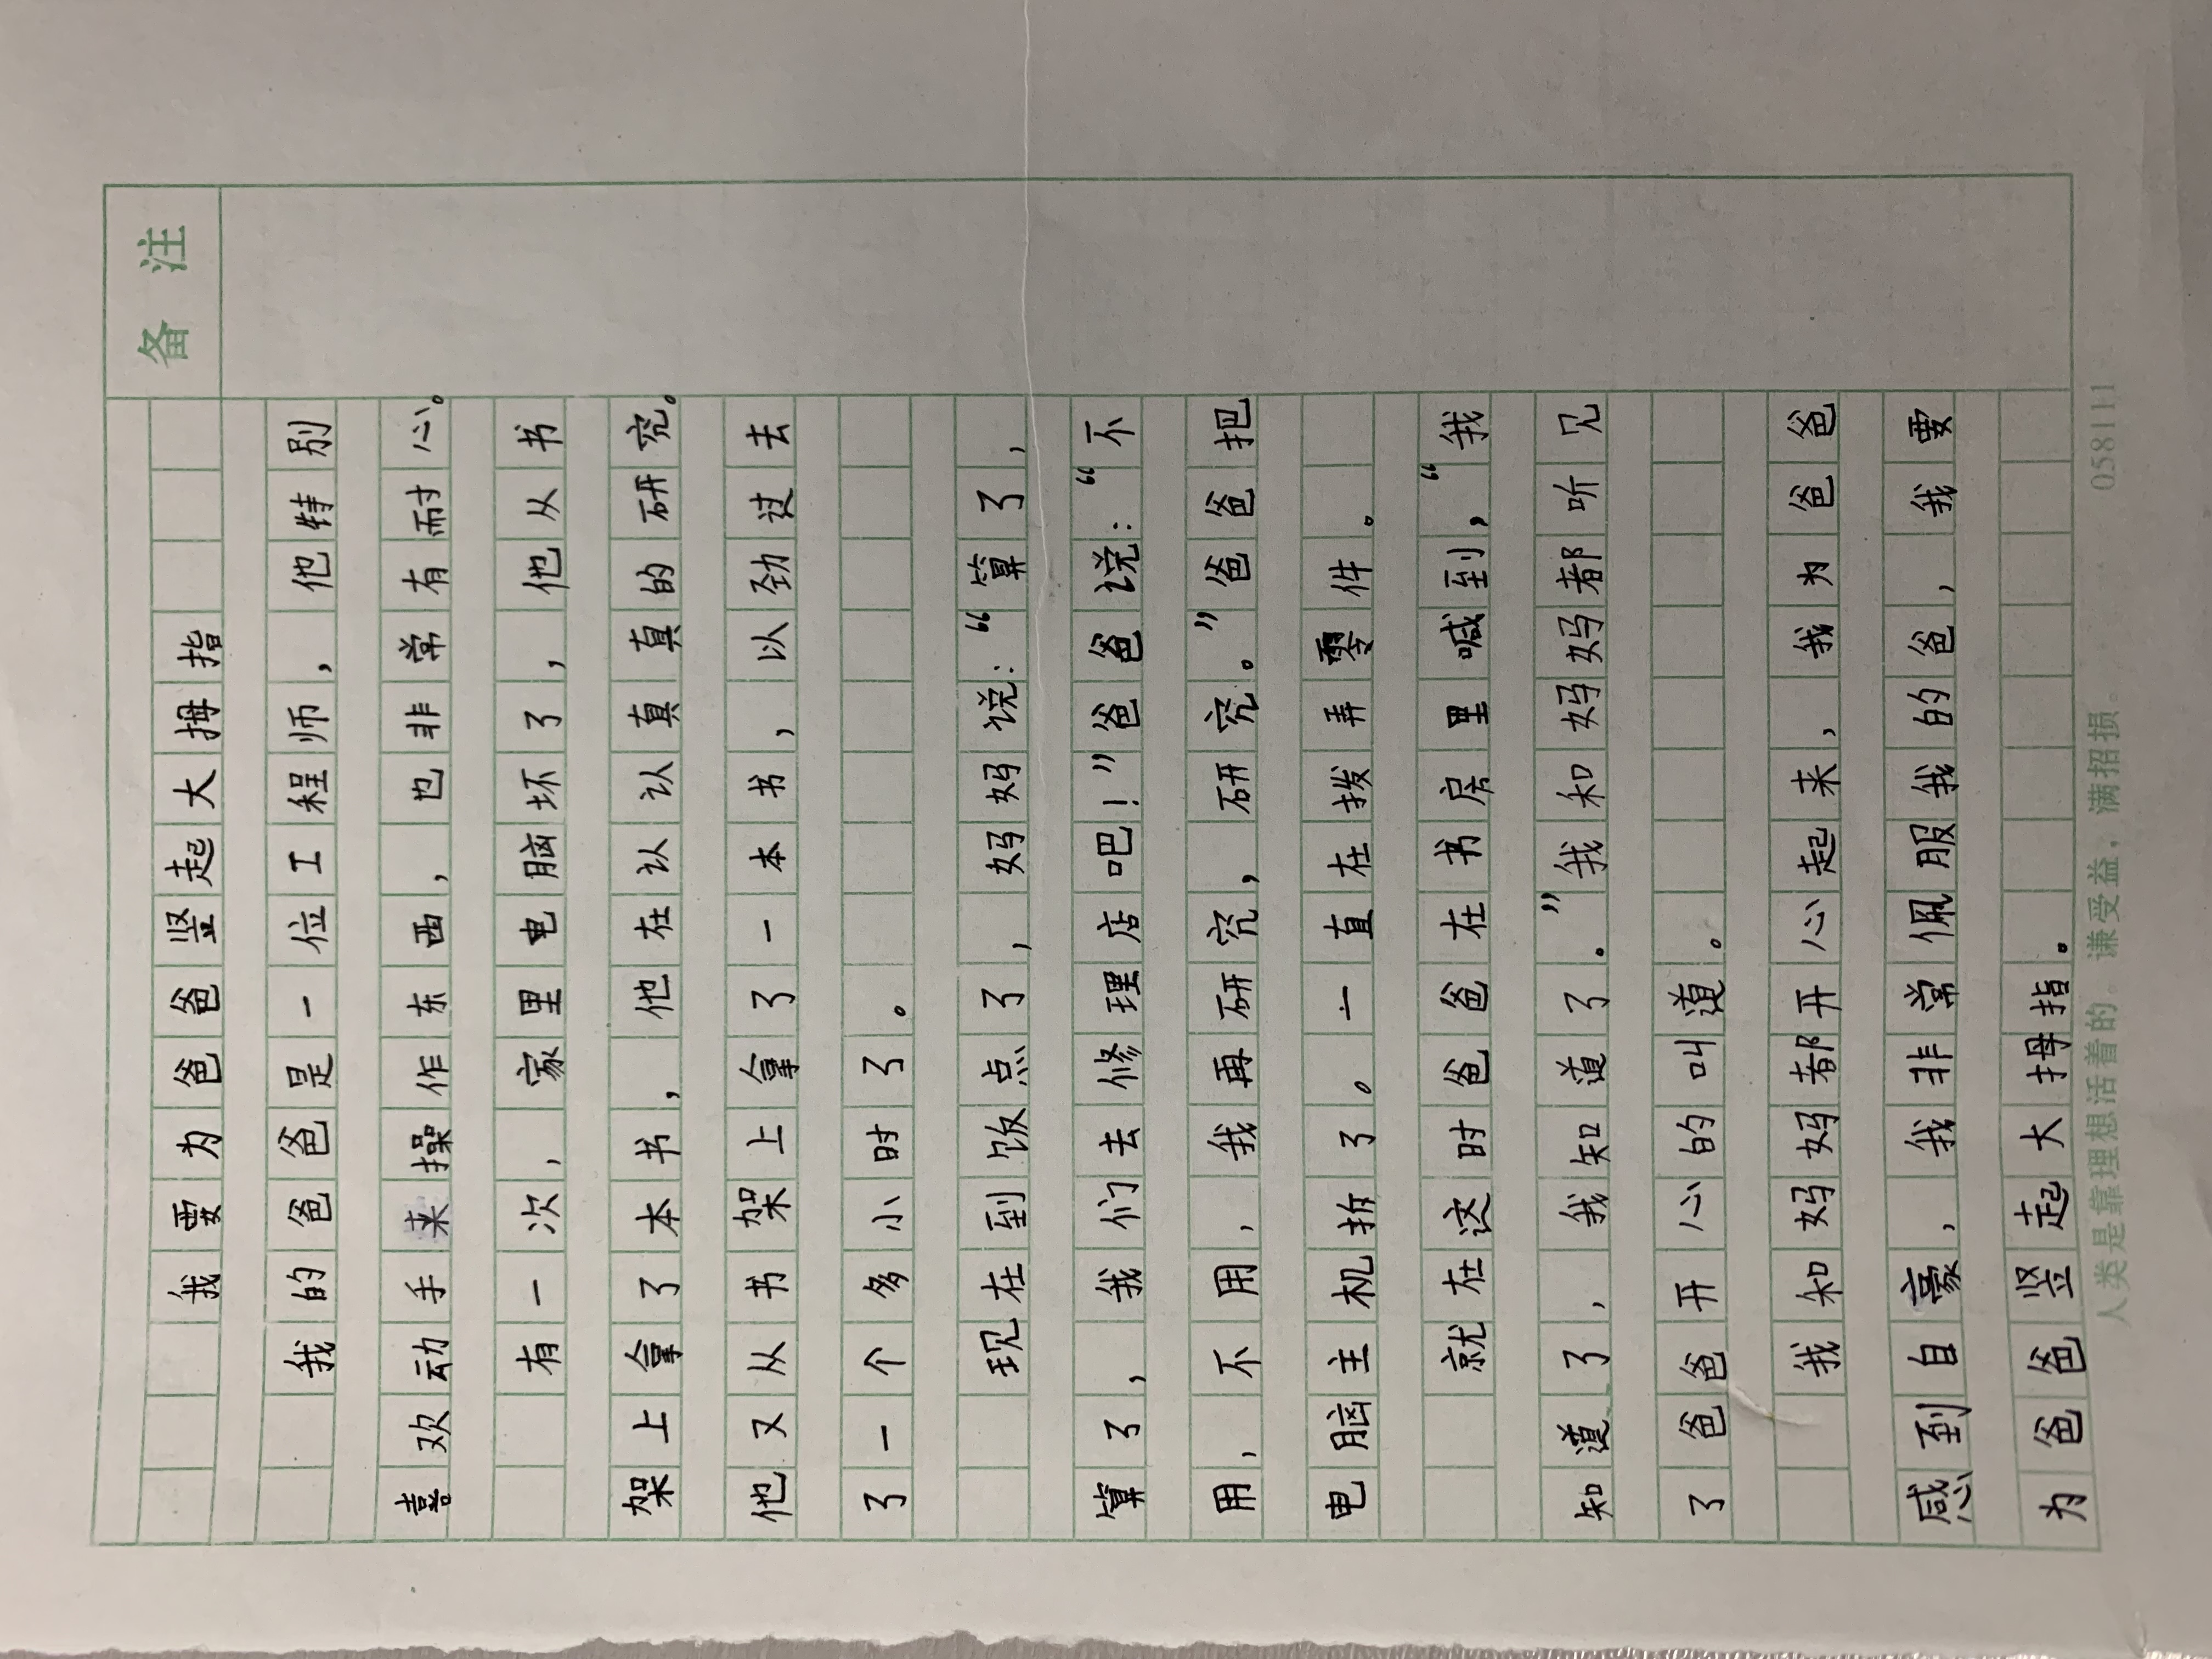 备 注
我要为爸爸竖起大拇指
我的爸爸是一位工程师，他特别
喜欢动手来操作东西，也非常有耐心。
有一次，家里电脑坏了，他从书
架上拿了本书，他在认认真真的研究。
他又从书架上拿了一本书，以劲过去
了一个多小时了。
现在到饭点了，妈妈说：“算了，
算了，我们去修理店吧！”爸爸说：“不
用，不用，我再研究，研究。”爸爸把
电脑主机拆了。一直在拨弄零件。
就在这时爸爸在书房里喊到，“我
知道了，我知道了.”我和妈妈都听见
了爸爸开心的叫道。
我和妈妈都开心起来，我为爸爸
感到自豪，我非常佩服我的爸，我要
为爸爸竖起大拇指。
人类是靠理想活着的。谦受益，满招损。 0581111